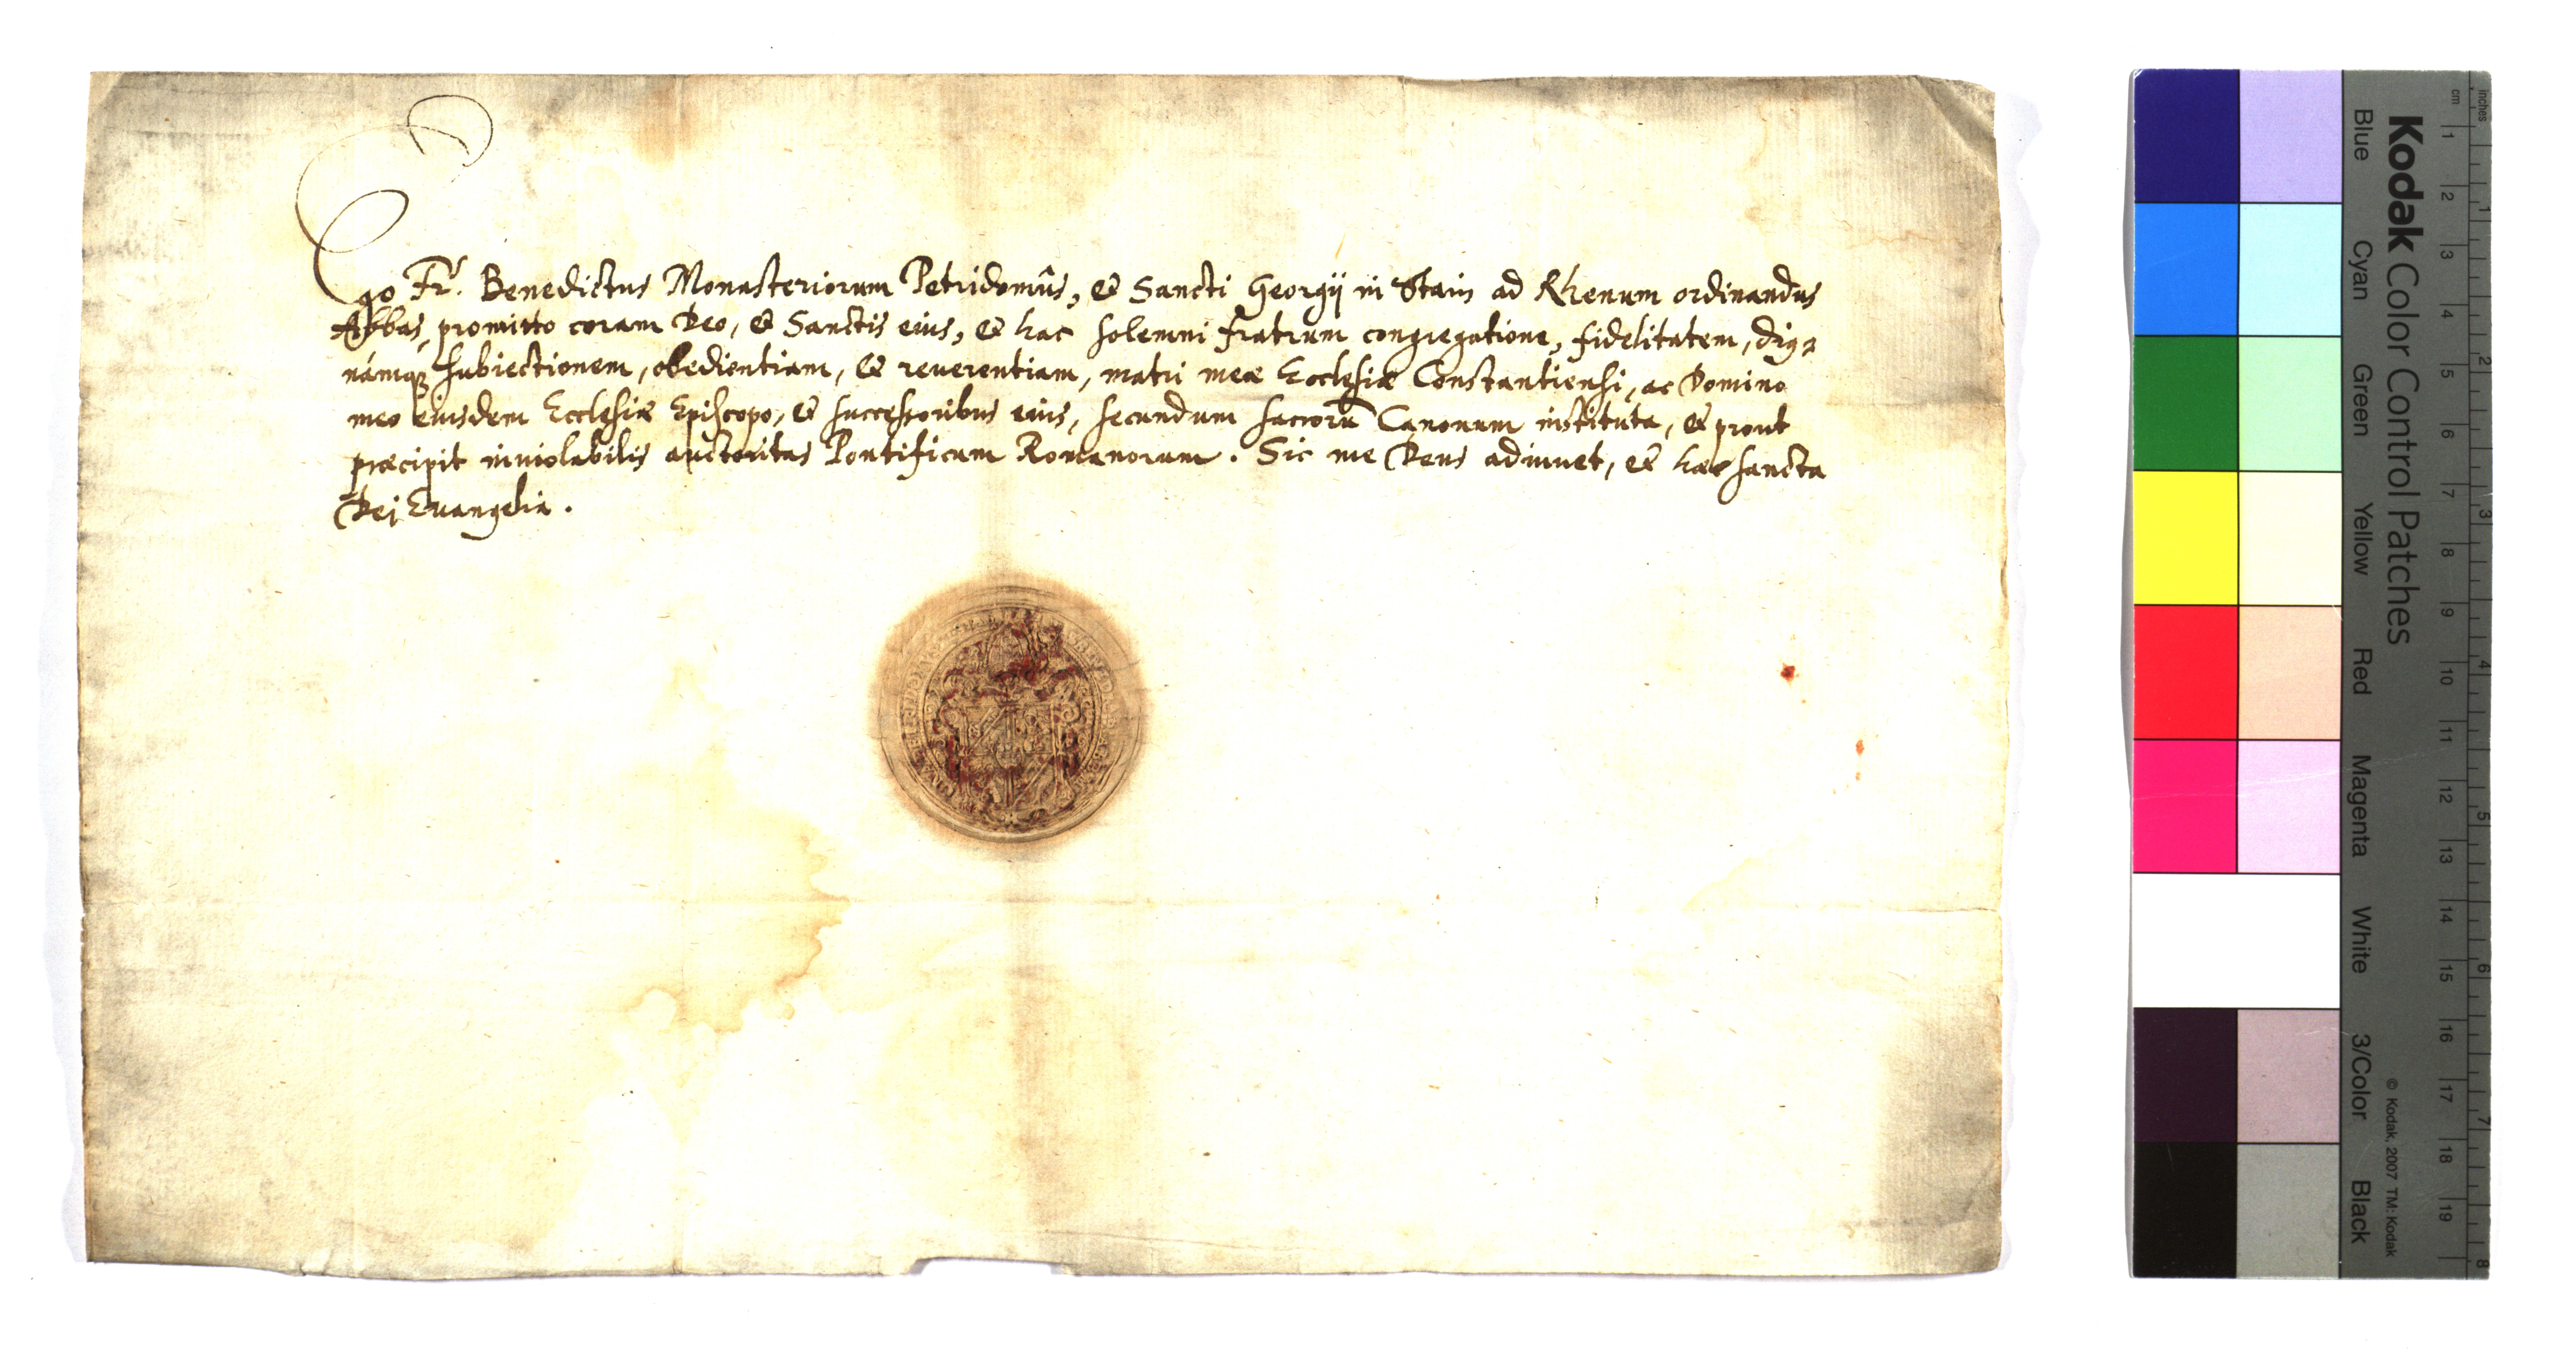 Ego Fr. Benedictus Monasteriorum Petridomûs, & Sancti Georgij in Stain ad Rhenum ordinandus
Abbas, promitto coram Deo, & Sanctis eius, & hac solemni fratrum congregatione, fidelitatem, dig=
námq; subiectionem, obedientiam, & reuerentiam, matri meæ Ecclesiæ Constantiensi, ac Domino
meo eiusdem Ecclesiæ Episcopo, & successoribus eius, secundum sacrorū Canonum instituta, & prout
præcipit inuiolabilis auctoritas Pontificum Romanorum. Sic me Deus adiuuet, & hæc sancta
Dei Euangelia.
Kodak Color Control Patches
Blue Cyan Green Yellow Red Magenta White 3/Color Black
© Kodak, 2007 TM: Kodak
cm 1 2 3 4 5 6 7 8 9 10 11 12 13 14 15 16 17 18 19
inches 1 2 3 4 5 6 7 8